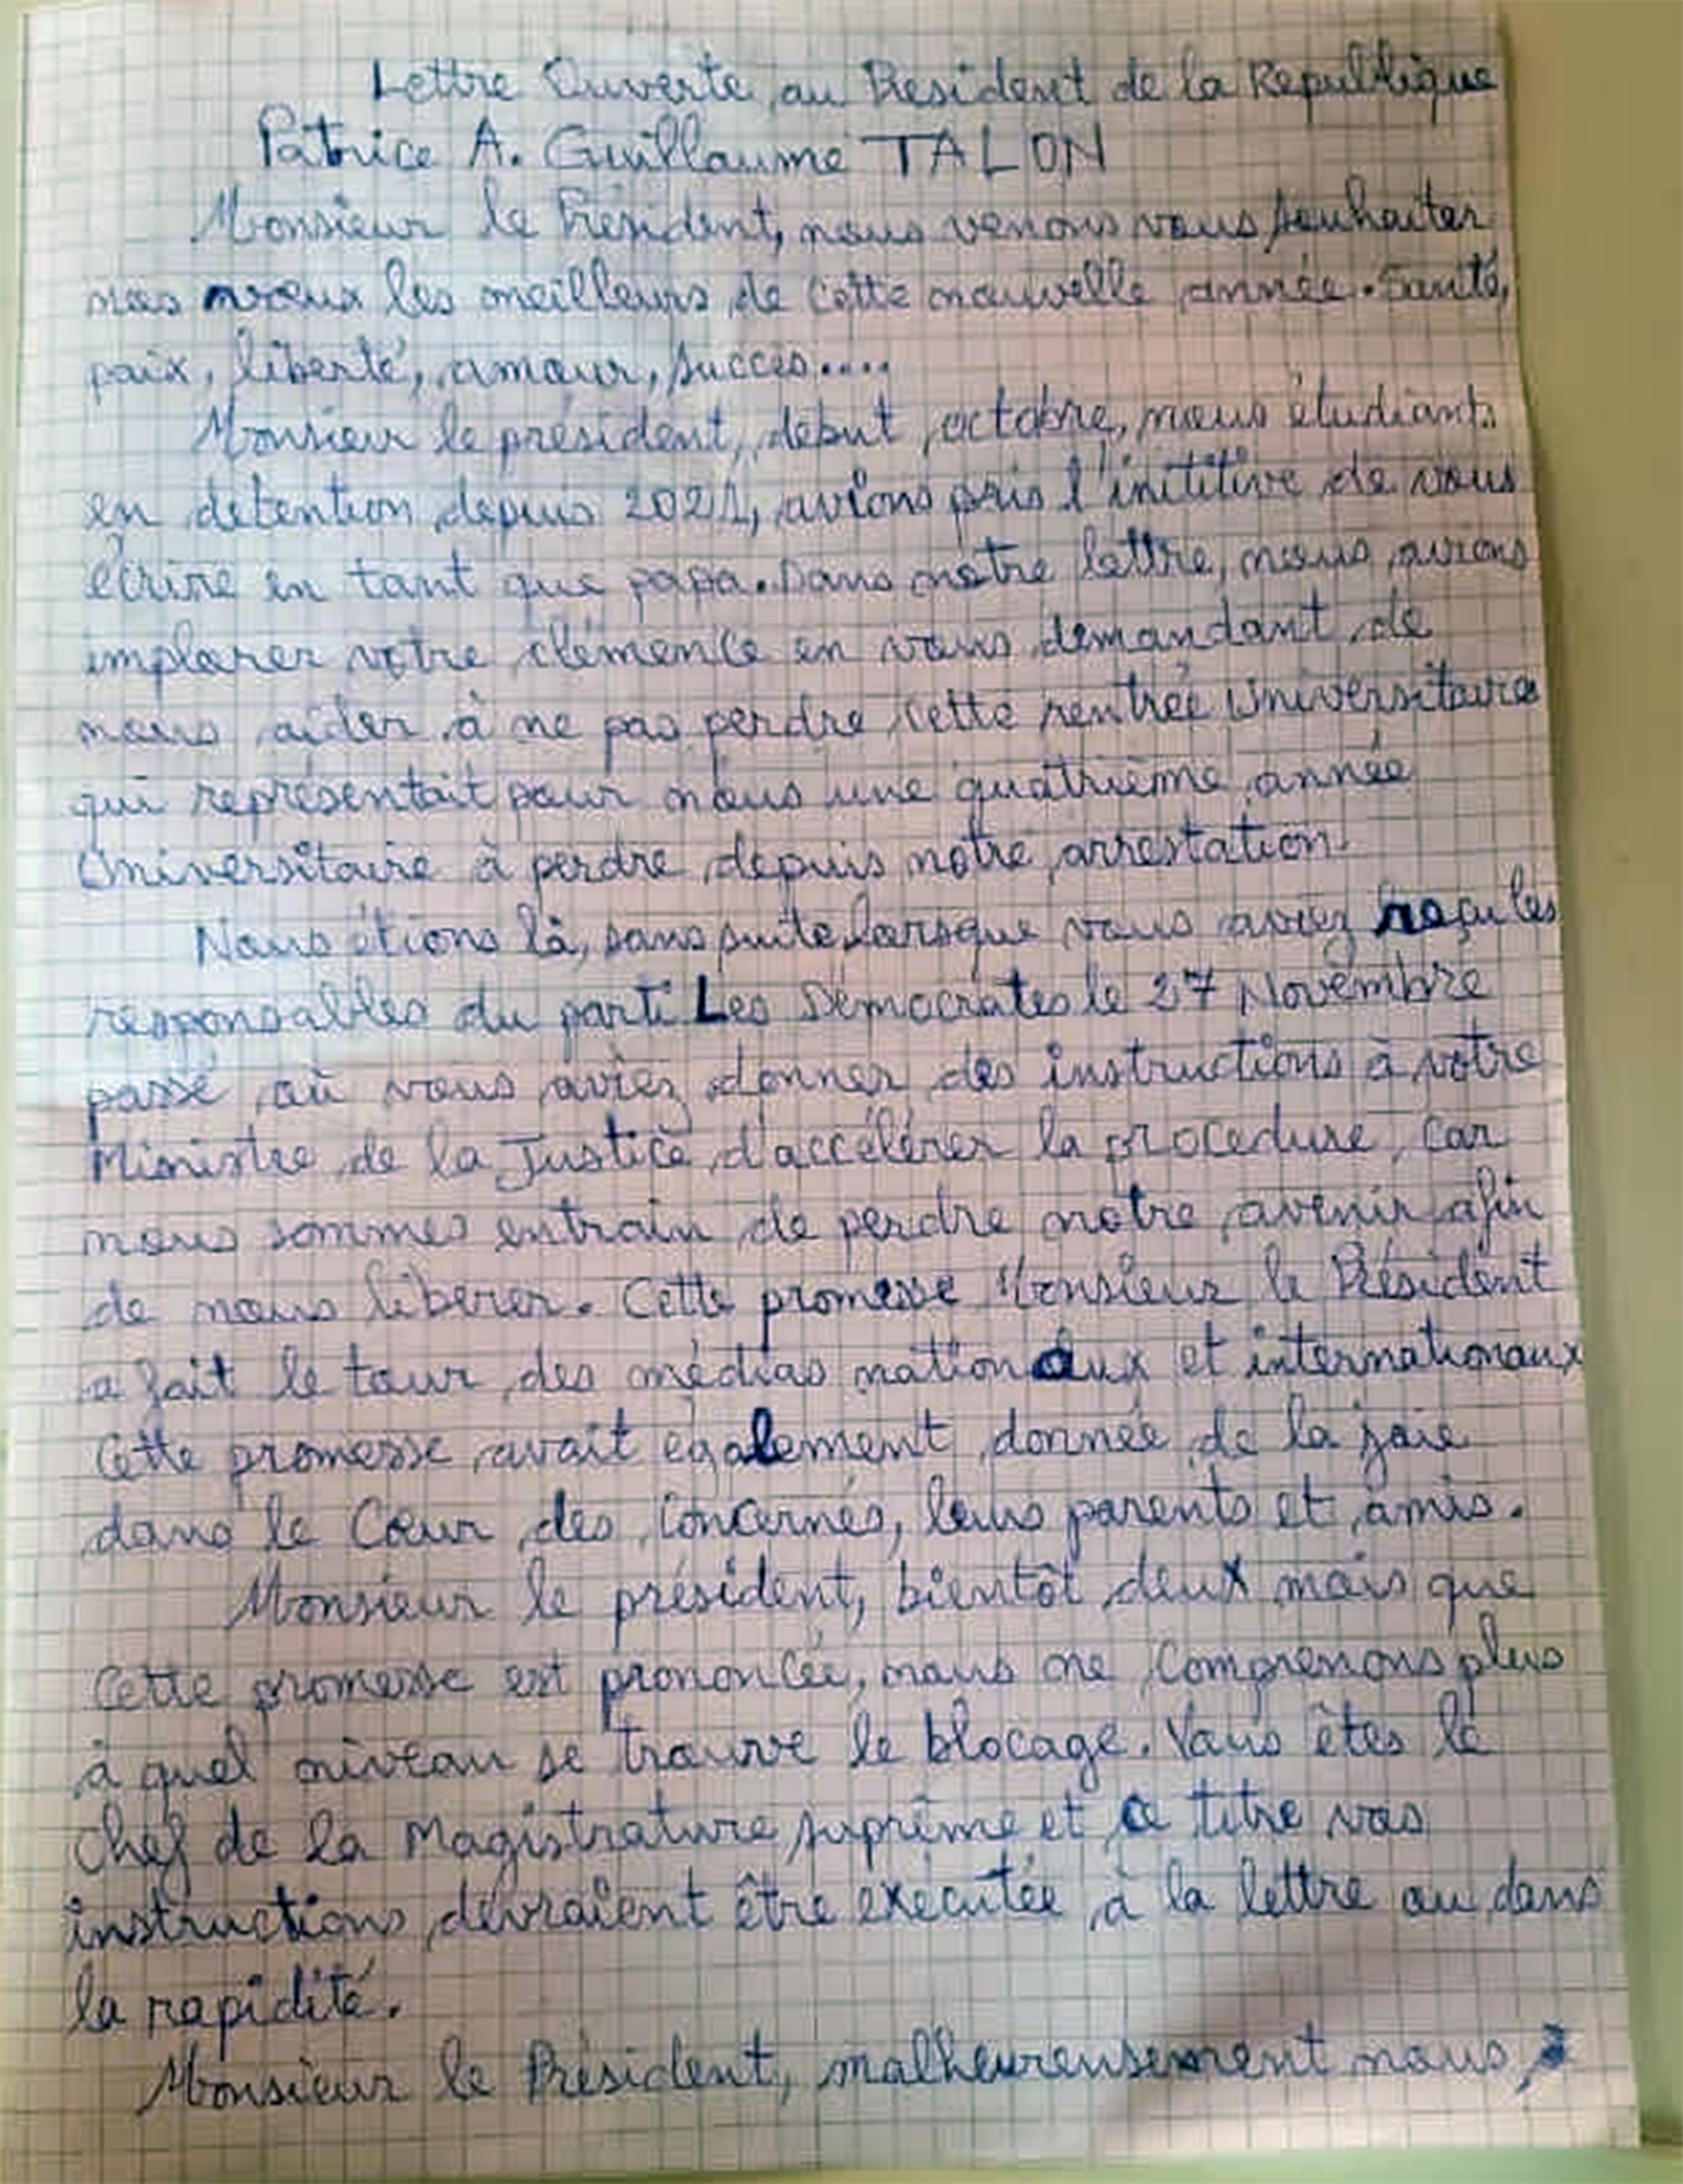 Lettre Ouverte au President de la Republique
Patrice A. Guillaume TALON
Monsieur le Président, nous venons vous souhaiter
nos vœux les meilleurs de cette nouvelle année. Santé,
paix, liberté, amour, succès....
Monsieur le président, début octobre, nous étudiants
en detention depuis 2021, avions pris l'inititive de vous
écrire en tant que papa. Dans notre lettre, nous avions
implorer votre clémence en vous demandant de
nous aider à ne pas perdre cette rentrée Universitaire
qui représentait pour nous une quatrième année
Universitaire à perdre depuis notre arrestation.
Nous étions là, sans suite lorsque vous aviez reçu les
responsables du parti Les Démocrates le 27 Novembre
passé où vous aviez donner des instructions à votre
Ministre de la Justice d'accélérer la procedure, car
nous sommes entrain de perdre notre avenir afin
de nous libérer. Cette promesse Monsieur le Président
a fait le tour des médias nationaux et internationaux
Cette promesse avait également donnée de la joie
dans le Cœur des Concernés, leurs parents et amis.
Monsieur le président, bientôt deux mois que
Cette promesse est prononcée, nous ne Comprenons plus
à quel niveau se trouve le blocage. Vous êtes le
Chef de la Magistrature suprême et à titre vos
instructions devraient être exécutée à la lettre ou dans
la rapidité.
Monsieur le Président, malheureusement nous,